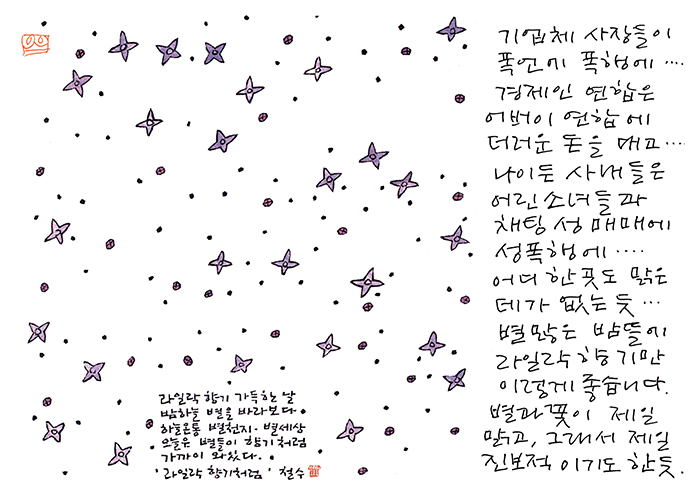 기업체 사장들이
폭언에 폭행에 ····
경제인 연합은
어버이 연합에
더러운 돈을 대고 ····
나이든 사내들은
어린 소녀들과
채팅 성매매에
성폭행에 ····
어디 한곳도 맑은
데가 없는 듯 ···
별 많은 밤뜰에
라일락 향기만
이렇게 좋습니다.
별과 꽃이 제일
맑고, 그래서 제일
진보적이기도 한듯.
라일락 향기 가득한 날
밤하늘 별을 바라보다.
하늘 온통 별천지 · 별세상
오늘은 별들이 향기처럼
가까이 와있다.
'라일락 향기처럼' 철수